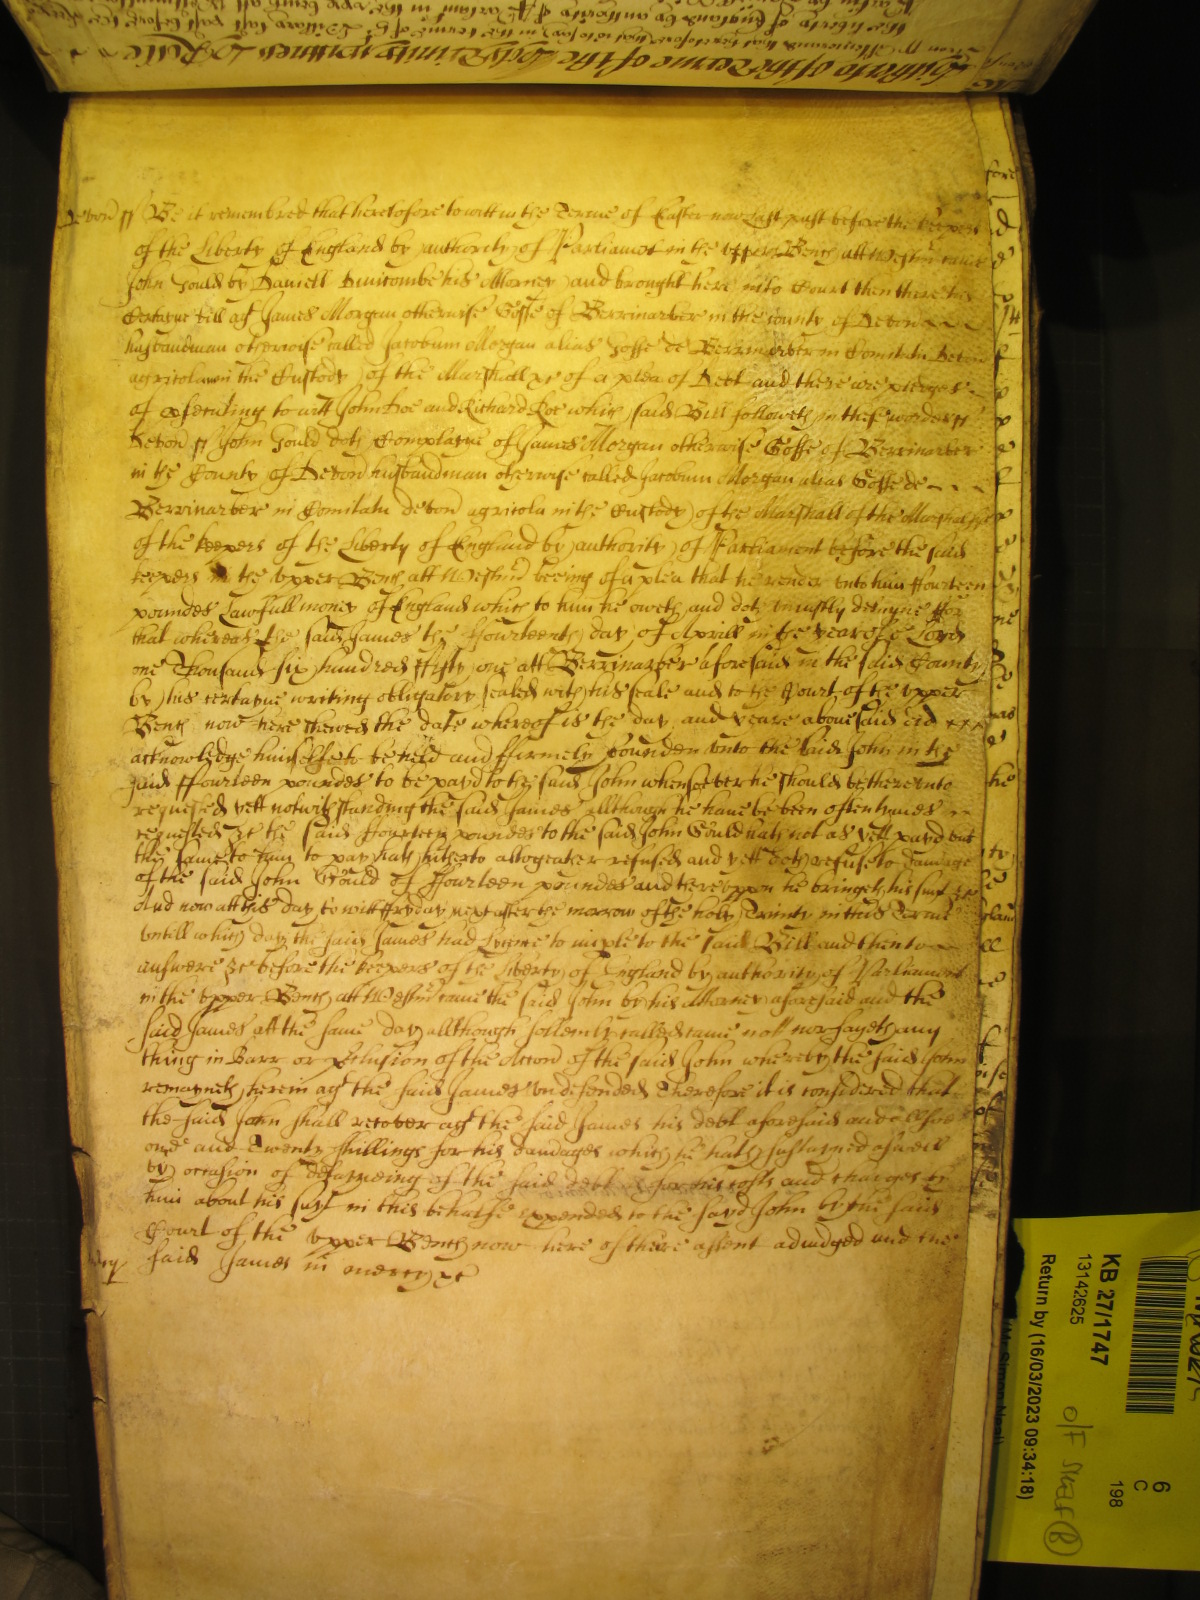 Devon ss Be it remembred that heretofore to witt in the Terme of Easter now last past before the keepers
of the Liberty of England by authority of Parliamt in the upper Bench att Westmr came
John Gould by Daniell his Attorney and brought here into Court then there his
Certayne bill agt James Morgan otherwise Gosse of Berrinarber in the county of Devon
husbandman otherwise called Jacobum Morgan alias Gosse de Berrinarber in Comitatu Devon
agricolam in the Custody of the Marshall &c of a plea of Debt and there are pledges
of prosecuting to witt John Doe and Richard Roe which said Bill followeth in these wordes ss
Devon ss John Gould doth Complayne of James Morgan otherwise Gosse of Berrinarber
in the County of Devon husbandman otherwise called Jacobum Morgan alias Gosse de
Berrinarber in Comitatu devon agricola in the Custody of the Marshall of the Marshalsey
of the keepers of the Liberty of England by authority of Parliament before the said
keepers in the upper Bench att Westmr beeing of a plea that he render unto him ffourteen
poundes Lawfull money of England which to him he oweth and doth uniustly detayne ffor
that whereas the said James the ffourteenth day of Aprill in the yeare of or Lord
one Thousand six hundred ffifty one att Berrinarber aforesaid in the said County
by his certayne writing obligatory sealed with his seale and to the Court of the upper
Bench now here shewed the date whereof is the day and yeare abovesaid did
acknowledge himselfe to be held and ffirmely bounden unto the said John in the
said ffourteen poundes to be payd to the said John whensoever he should be thereunto
requested yett notwithstanding the said James allthough he have be been oftentymes
requested &c the said ffourteen poundes to the said John Gould hath not as yett payd but
the same to him to pay hath hitherto altogeather refused and yett doth refuse to damage
of the said John Gould of ffourteen poundes and thereuppon he bringeth his suit &c
And now att this day to witt ffryday next after the morrow of the holy Trinity in this Terme
untill which day the said James had Lycence to imple to the said Bill and then to
answere &c before the keepers of the Liberty of England by authority of Parliament
in the upper Bench att Westmr came the said John by his attorney aforesaid and the
said James att the same day allthough sollemly called came nott nor sayeth any
thing in Barr or preclusion of the Accon of the said John whereby the said John
remayneth herein agt the said James undefended Therefore it is considered that
the said John shall recover agt the said James his debt aforesaid and allsoe
one and Twenty shillings for his damages which he hath sustayned aswell
by occasion of detayneing of the said debt as for his costs and charges by
him about his suyt in this behalfe expended to the sayd John by the said
Court of the upper Bench now here of theire assent adiudged and the
said James in mercy &c
mcy
KB 27/1747
13142625
Return by (16/03/2023 09:34:18)
6
C
198
O/F Shelf (B)